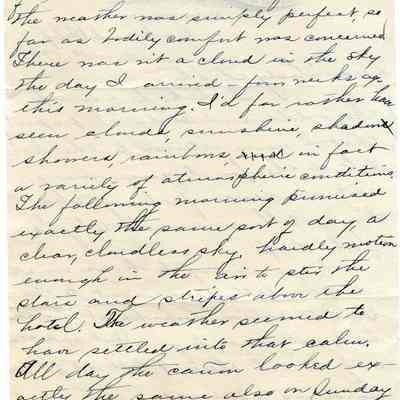 The weather was simply perfect, so
far as bodily comfort was concerned
There was n't a cloud in the sky
the day I arrived - four weeks ago
this morning. I'd far rather have
seen clouds, sunshine, shadows,
showers, rainbows, in fact
a variety of atmospheric conditions.
The following morning promised
exactly the same sort of day, a
clear, cloudless sky, hardly motion
enough in the air to stir the
stars and stripes above the
hotel. The weather seemed to
have settled into that calm.
All day the cañon looked ex-
actly the same also on Sunday